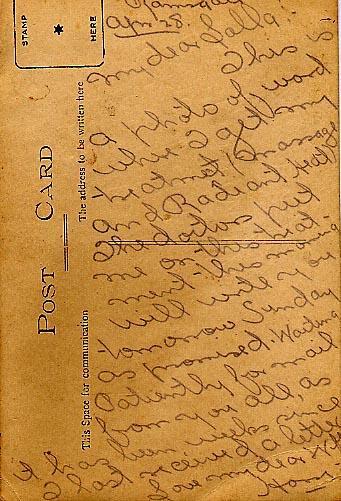 POST CARD
STAMP
HERE
This Space for communication
The address to be written here
Ramsgate
Apr. 28.
My dear Lalla.
This is
a photo of ward
where I get my
treatment, massage
and Radiant Heat
The doctors put
me on this treat-
ment this morning
will write you
tomorrow Sunday
as promised. Waiting
Patiently for mail
from you all, as
it has been weeks since
I last received a letter
Love my dear
Tom.